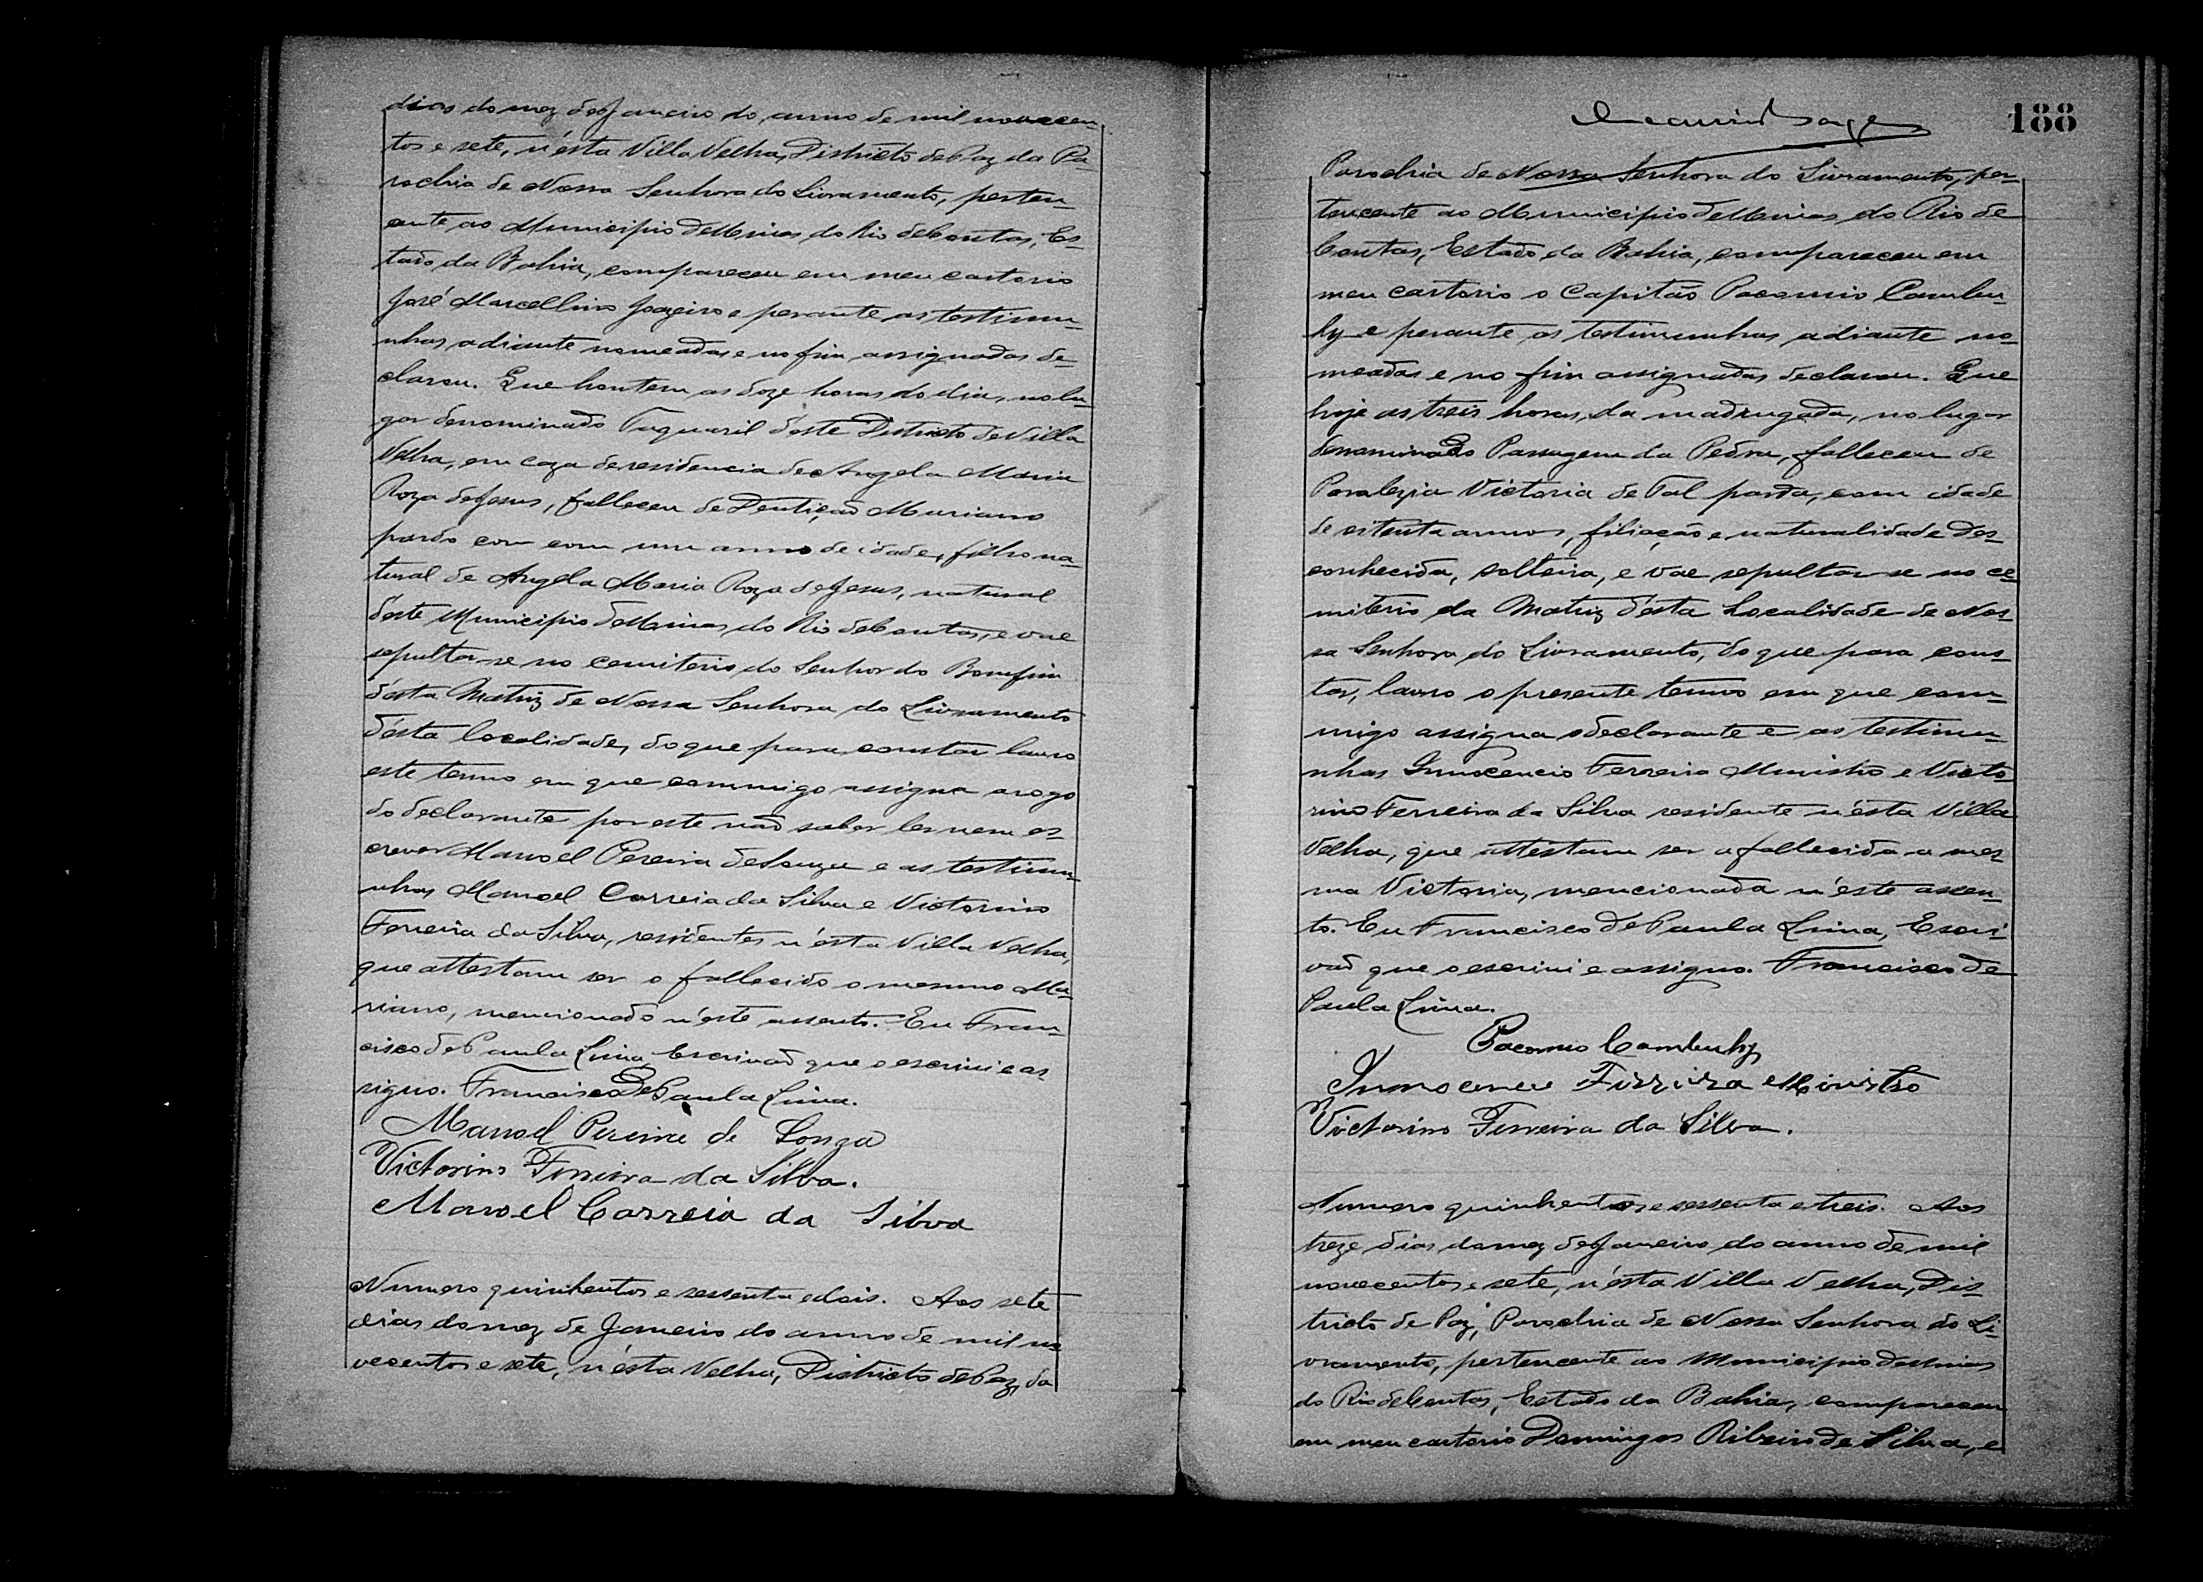 dias do mez de Janeiro do anno de mil novecen-
tos e sete, n'esta Villa Velha, Districto de Paz da Pa-
rochia de Nossa Senhora do Livramento, perten-
cente ao Municipio de Minas do Rio de Contas, Es-
tado da Bahia, compareceu em meu cartorio
José Marcellino Joazeiro e perante as testimu-
nhas adiante nomeadas e no fim assignadas de-
clarou. Que hontem as doze horas do dia, no lu-
gar denominado Tuquaril d'este Districto de Villa
Velha, em caza de residencia de Angela Maria
Roza de Jesus, falleceu de Dentição Mariano
pardo com um anno de idade, filho na-
tural de Angela Maria Roza de Jesus, natural
d'este Municipio de Minas do Rio de Contas, e vae
sepultar-se no cemiterio do Senhor do Bomfim
d'esta Matriz de Nossa Senhora do Livramento
d'esta localidade, do que para constar lavro
este termo em que commigo assigna a rogo
do declarante por este não saber ler nem es-
crever Manoel Pereira de Souza e as testimu-
nhas Manoel Correia da Silva e Victorino
Ferreira da Silva, residentes n'esta Villa Velha,
que attestam ser o fallecido o mesmo Ma-
riano, mencionado n'este assento. Eu Fran-
cisco de Paula Lima, Escrivaõ que o escrivi e as-
signo. Francisco de Paula Lima.
Manoel Pereira de Souza
Victorino Ferreira da Silva.
Manoel Correia da Silva
Numero quinhentos e sessenta e dois. Aos sete
dias do mez de Janeiro do anno de mil no
vecentos e sete, n'esta Velha, Districto de Paz, da
188
Parochia de Nossa Senhora do Livramento, per-
tencente ao Municipio de Minas do Rio de
Contas, Estado da Bahia, compareceu em
meu cartorio o Capitão Pacomio Cambu-
hy e perante as testimunhas adiante no-
meadas e no fim assignadas declarou. Que
hoje as treis horas, da madrugada, no lugar
denominado Passagem da Pedra, falleceu de
Paralezia Victoria de Tal parda, com idade
de oitenta annos, filiação e naturalidade des-
conhecida, solteira, e vae sepultar se no ce-
miterio da Matriz d'esta Localidade de Nos-
sa Senhora do Livramento, do que para cons-
tar, lavro o presente termo em que com-
migo assigna o declarante e as testimu-
nhas Innocencio Ferreira Ministro e Victo-
rino Ferreira da Silva residente n'esta Villa
Velha, que attestam ser a fallecida a mes-
ma Victoria, mencionada n'este assen-
to. Eu Francisco de Paula Lima, Escri-
vaõ que o escrivi e assigno. Francisco de
Paula Lima.
Pacomio Cambuhy
Innocencio Firreira Ministro
Victorino Ferreira da Silva.
Numero quinhentos e sessenta e treis. Aos
treze dias do mez de Janeiro do anno de mil
novecentos e sete, n'esta Villa Velha, Dis-
tricto de Paz, Parochia de Nossa Senhora do Li-
vramento, pertencente ao Municipio de Minas
do Rio de Contas, Estado da Bahia, compareceu
em meu cartorio Domingos Ribeiro da Silva, e